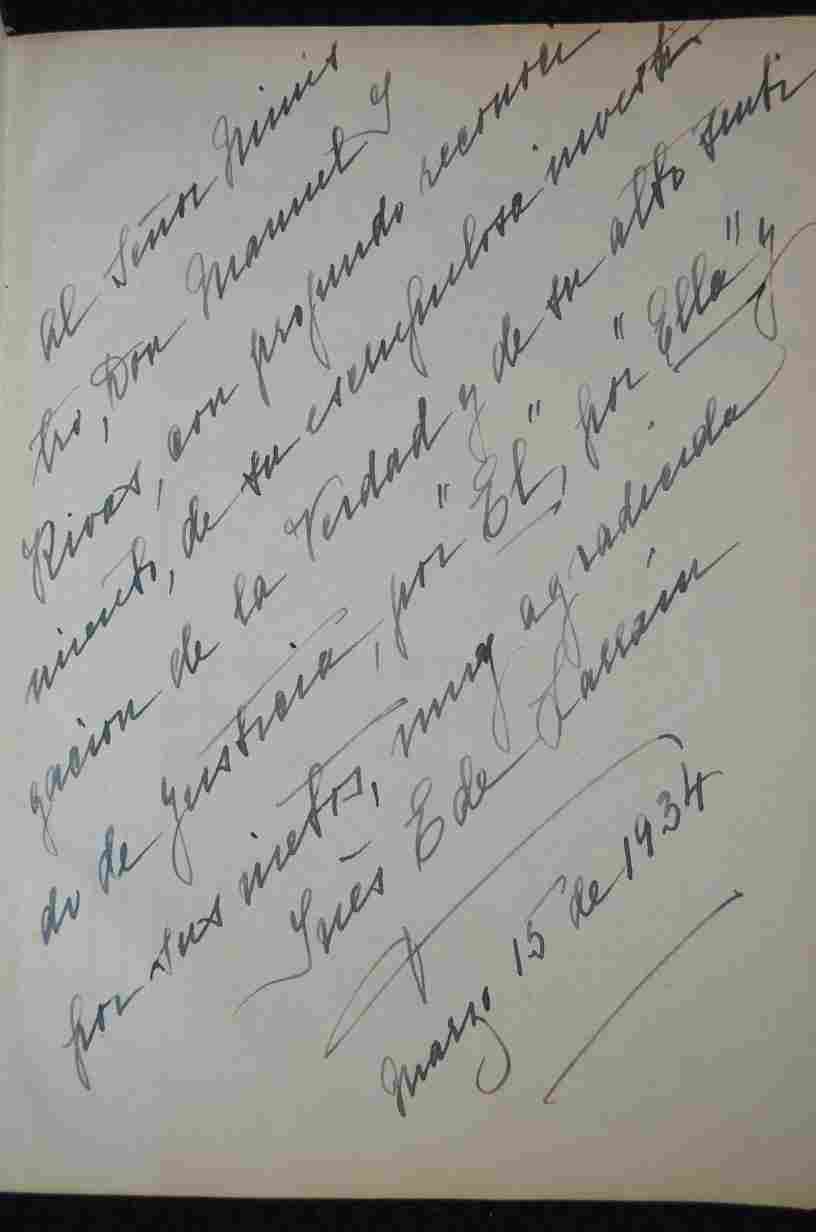 Al Señor Minis
tro, Don Manuel J
Rivas, con profundo reconoci
miento, de su escrupulosa investi
gacion de la Verdad y de su alto senti
do de justicia, por "El", por "Ella" y
por sus nietos, muy agradecida
Inés E de Larraín
Marzo 15 de 1934